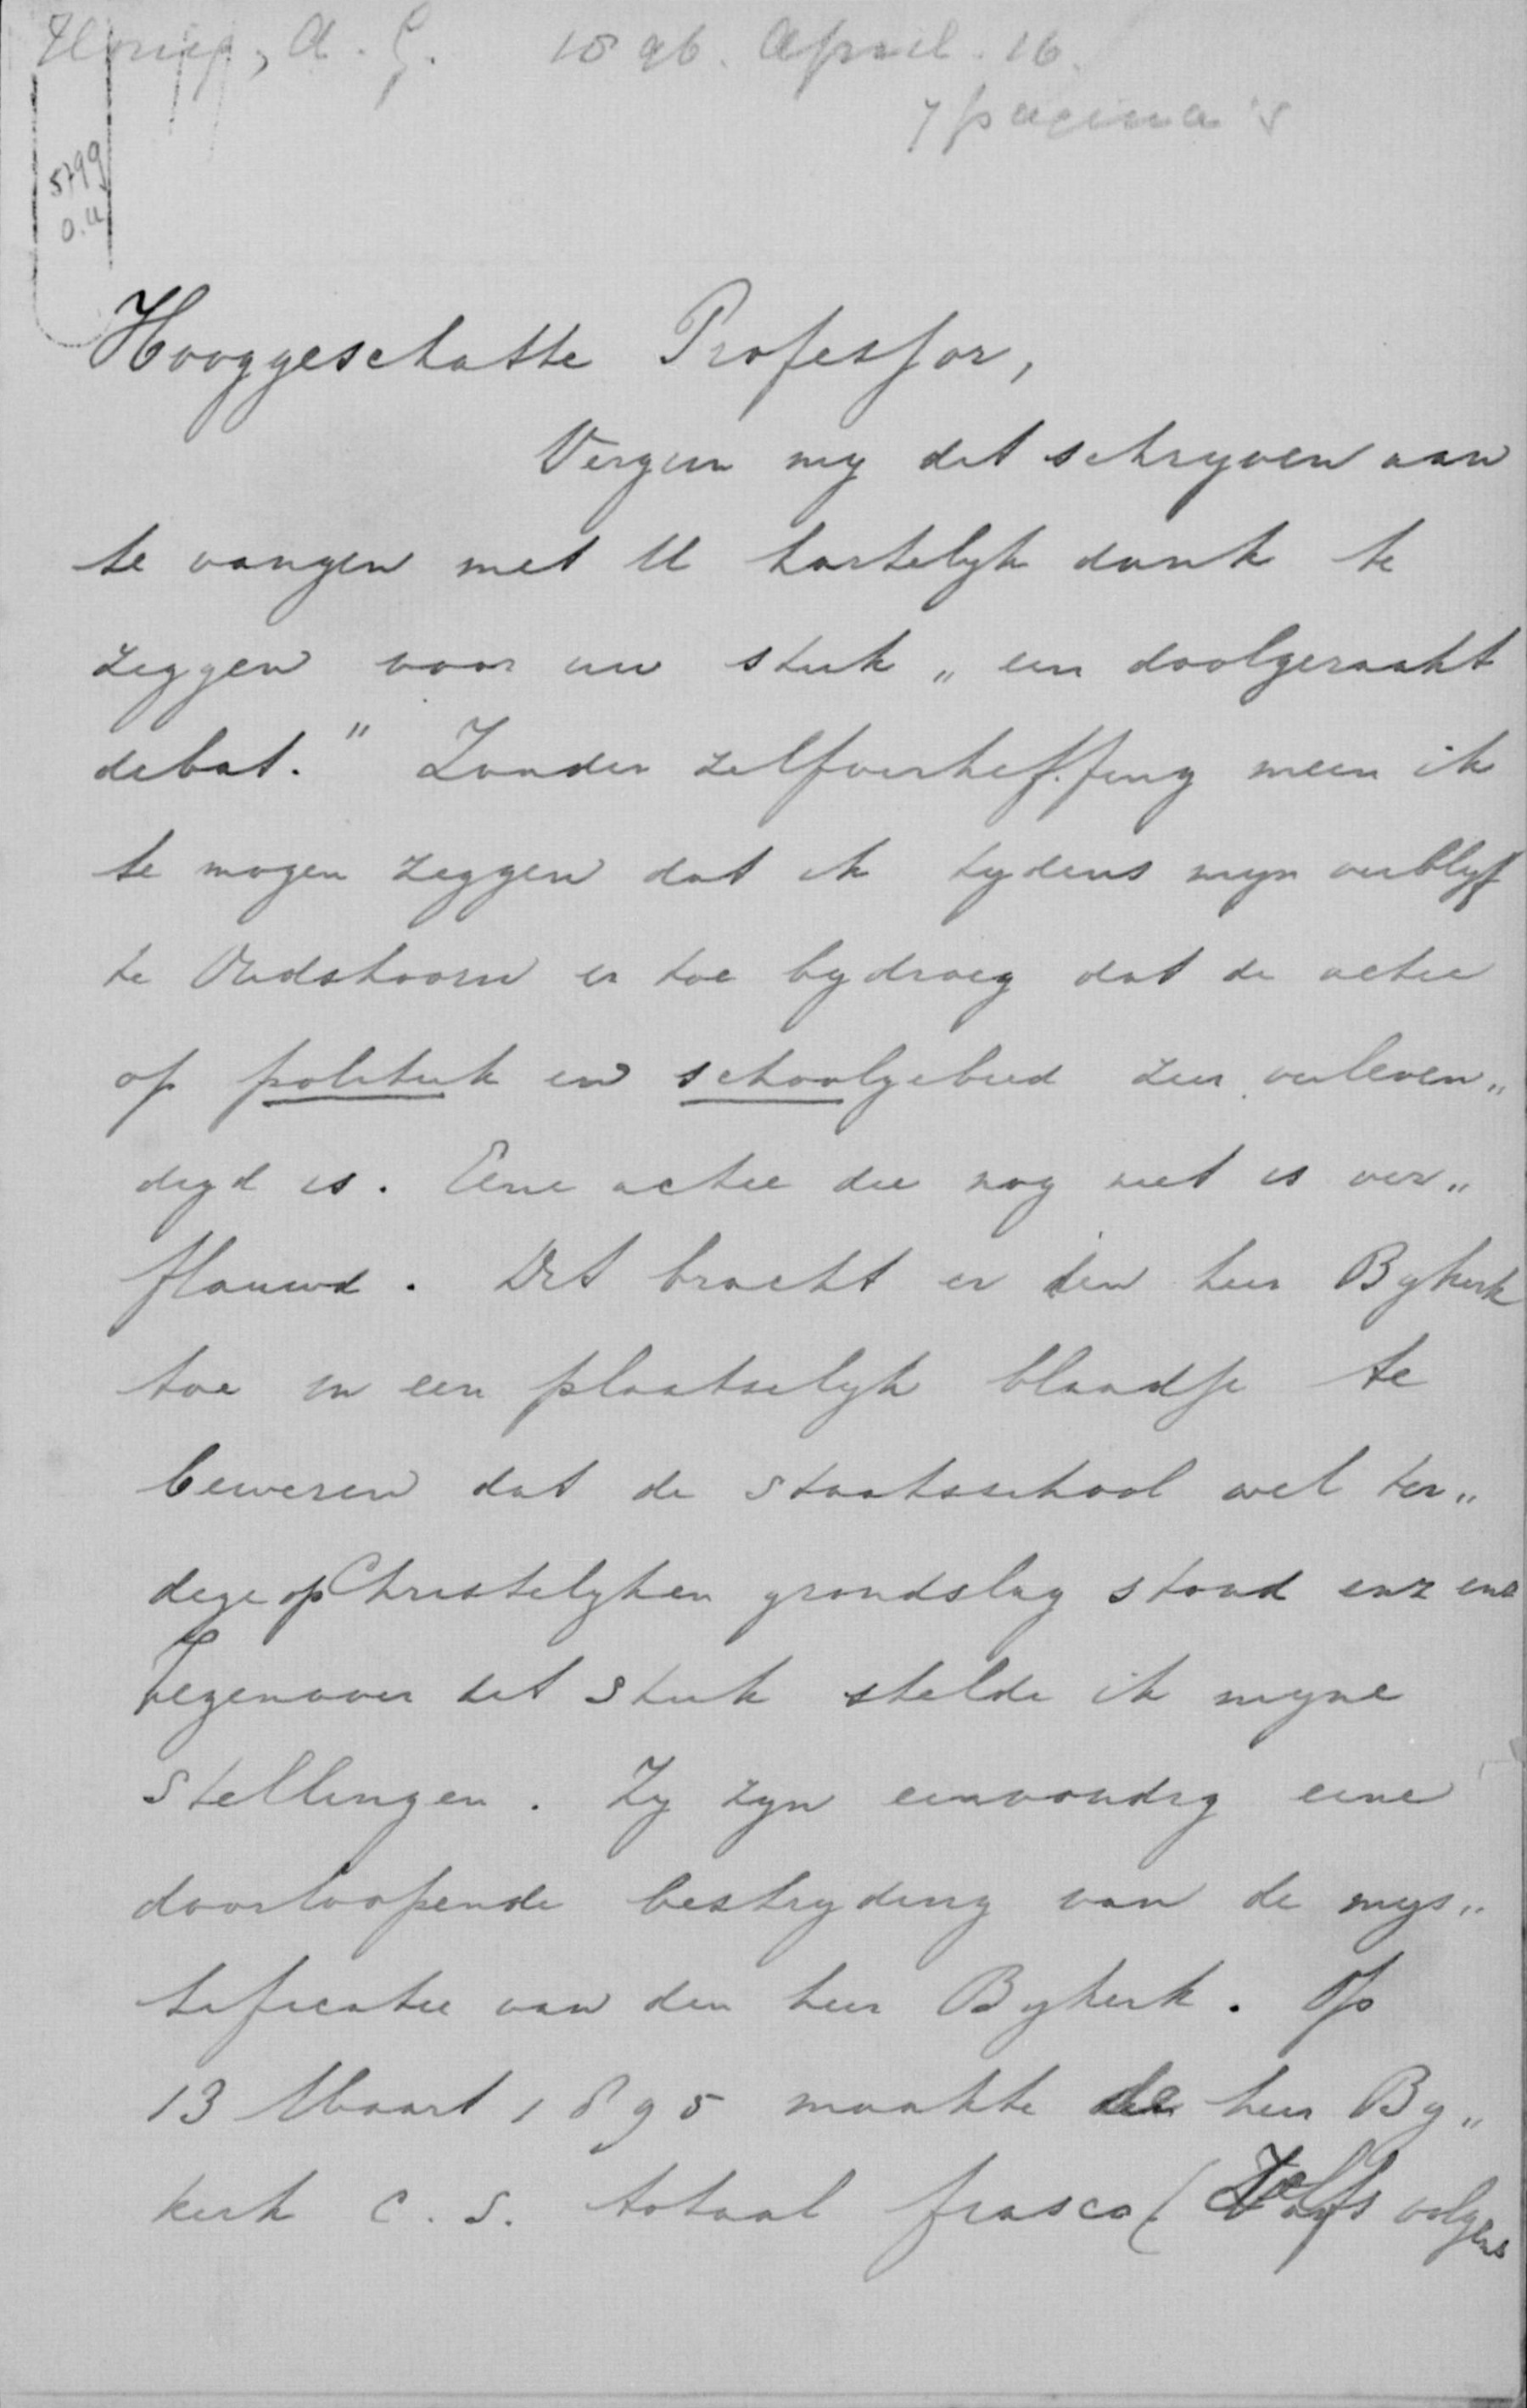 Honig, A. G. 1896. April. 16.
7 pagina's
5799
O.U
Hooggeschatte Professor,
Vergun my dit schryven aan
te vangen met U hartelyk dank te
zeggen voor uw stuk „ een doolgeraakt
debat." Zonder zelfverheffing meen ik
te mogen zeggen dat ik tydens myn verblyf
te Oudshoorn er toe bydroeg dat de actie
op politiek en schoolgebied zeer verleven„
digd is. Eene actie die nog niet is ver„
flauwd. Dit bracht er den heer Bykerk
toe in een plaatselyk blaadje te
beweren dat de staatsschool wel ter„
dege op Christelyken grondslag stond enz enz
Tegenover dit stuk stelde ik myne
stellingen. Zy zyn eenvoudig eene
doorloopende bestryding van de mys„
tificatie van den heer Bykerk. Op
13 Maart 1895 maakte de heer By„
kerk c. s. totaal fiasco (Zelfs volgens